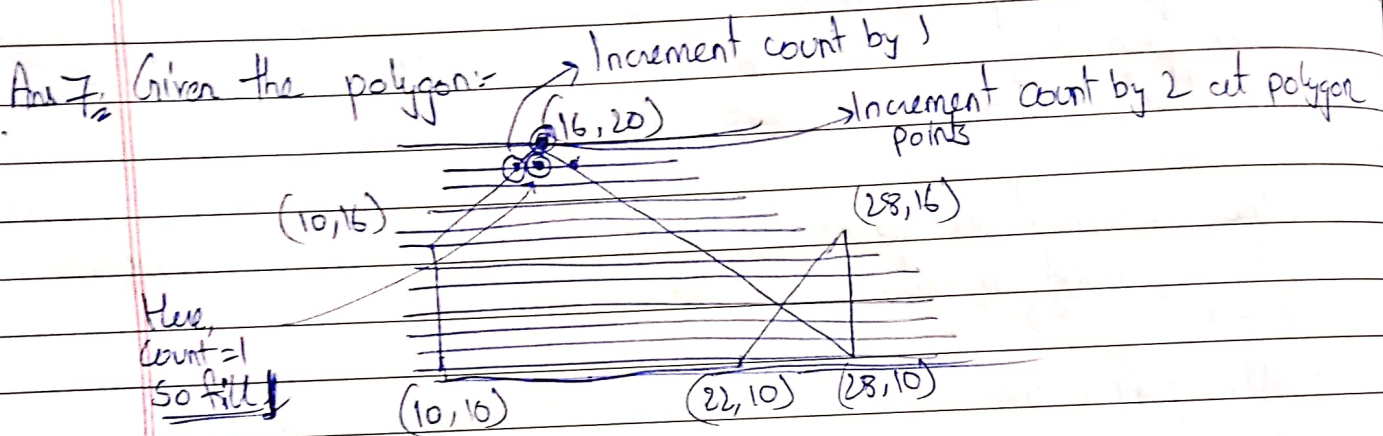 Ans 7. Given the polygon:-
Increment count by 1
(16,20)
Increment count by 2 at polygon
points
(10,16)
(28,16)
Here,
count=1
So fill
(10,10)
(22,10)
(28,10)